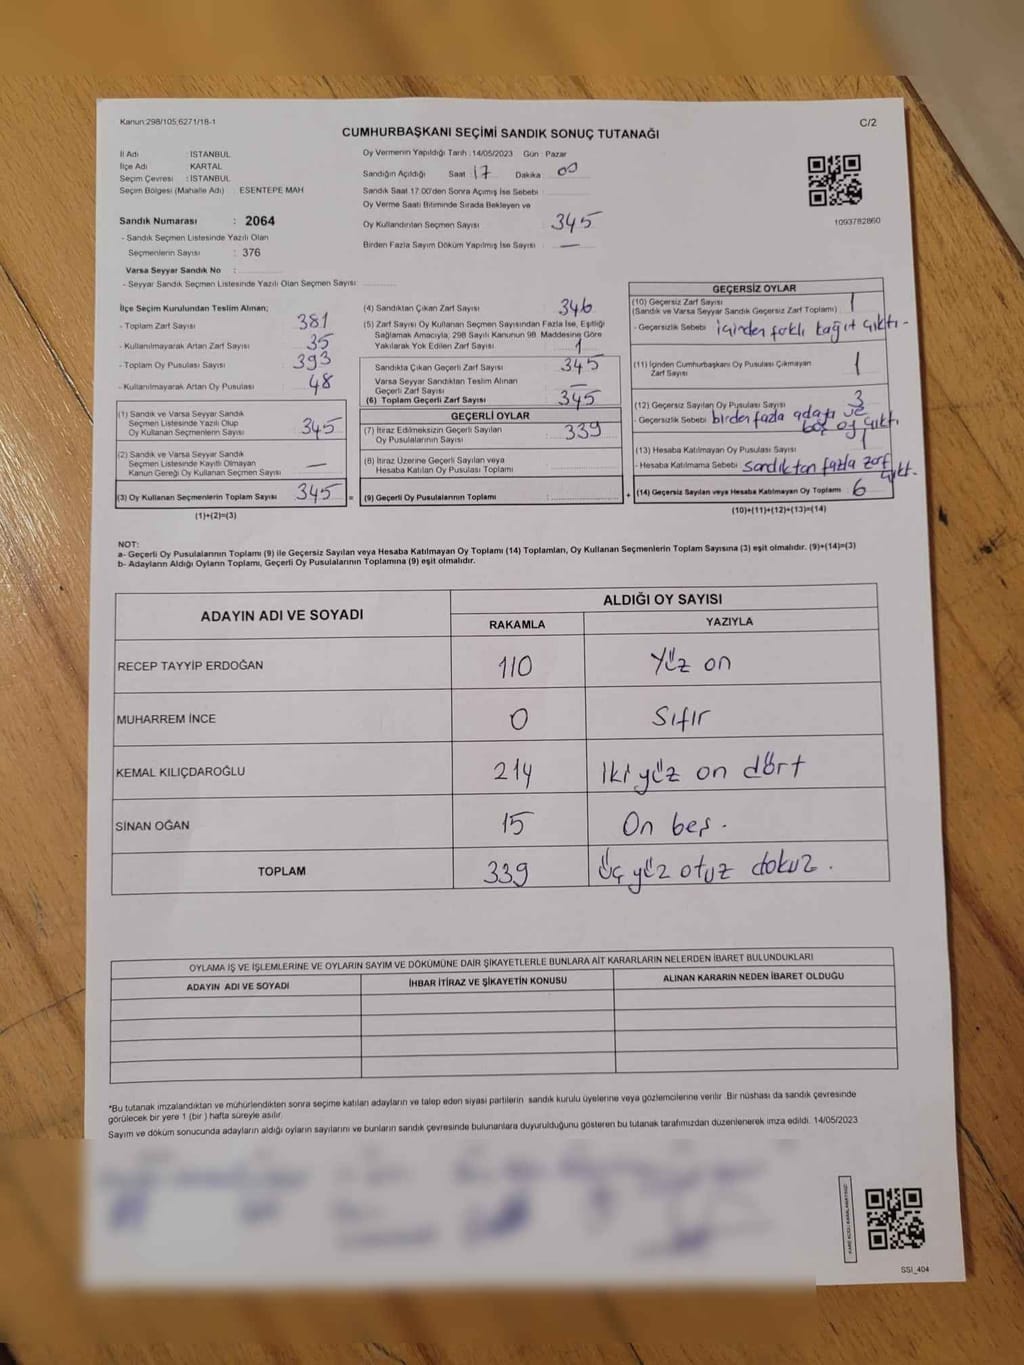 Kanun:298/105,6271/18-1
C/2
CUMHURBAŞKANI SEÇİMİ SANDIK SONUÇ TUTANAĞI
İl Adı : İSTANBUL
İlçe Adı : KARTAL
Seçim Çevresi : İSTANBUL
Seçim Bölgesi (Mahalle Adı) : ESENTEPE MAH
Sandık Numarası : 2064
- Sandık Seçmen Listesinde Yazılı Olan
Seçmenlerin Sayısı : 376
Varsa Seyyar Sandık No :
- Seyyar Sandık Seçmen Listesinde Yazılı Olan Seçmen Sayısı :
Oy Vermenin Yapıldığı Tarih :14/05/2023 Gün : Pazar
Sandığın Açıldığı Saat 17 Dakika 00
Sandık Saat 17:00'den Sonra Açımış İse Sebebi
Oy Verme Saati Bitiminde Sırada Bekleyen ve
Oy Kullandırılan Seçmen Sayısı : 345
Birden Fazla Sayım Döküm Yapılmış İse Sayısı : —
1093782860
İlçe Seçim Kurulundan Teslim Alınan;
- Toplam Zarf Sayısı : 381
- Kullanılmayarak Artan Zarf Sayısı : 35
- Toplam Oy Pusulası Sayısı : 393
- Kullanılmayarak Artan Oy Pusulası : 48
(1) Sandık ve Varsa Seyyar Sandık
Seçmen Listesinde Yazılı Olup
Oy Kullanan Seçmenlerin Sayısı : 345
(2) Sandık ve Varsa Seyyar Sandık
Seçmen Listesinde Kayıtlı Olmayan
Kanun Gereği Oy Kullanan Seçmen Sayısı : —
(3) Oy Kullanan Seçmenlerin Toplam Sayısı : 345 =
(1)+(2)=(3)
(4) Sandıktan Çıkan Zarf Sayısı : 346
(5) Zarf Sayısı Oy Kullanan Seçmen Sayısından Fazla İse, Eşitliği
Sağlamak Amacıyla; 298 Sayılı Kanunun 98. Maddesine Göre
Yakılarak Yok Edilen Zarf Sayısı : 1
Sandıkta Çıkan Geçerli Zarf Sayısı : 345
Varsa Seyyar Sandıktan Teslim Alınan
Geçerli Zarf Sayısı : —
(6) Toplam Geçerli Zarf Sayısı : 345
GEÇERLİ OYLAR
(7) İtiraz Edilmeksizin Geçerli Sayılan
Oy Pusulalarının Sayısı : 339
(8) İtiraz Üzerine Geçerli Sayılan veya
Hesaba Katılan Oy Pusulası Toplamı :
(9) Geçerli Oy Pusulalarının Toplamı : +
GEÇERSİZ OYLAR
(10) Geçersiz Zarf Sayısı : 1
(Sandık ve Varsa Seyyar Sandık Geçersiz Zarf Toplamı)
- Geçersizlik Sebebi : içinden farklı kağıt çıktı -
(11) İçinden Cumhurbaşkanı Oy Pusulası Çıkmayan
Zarf Sayısı : 1
(12) Geçersiz Sayılan Oy Pusulası Sayısı : 3
- Geçersizlik Sebebi : birden fazla adayı ve
boş oy çıktı.
(13) Hesaba Katılmayan Oy Pusulası Sayısı : 1
- Hesaba Katılmama Sebebi : sandıktan fazla zarf
çıkt.
(14) Geçersiz Sayılan veya Hesaba Katılmayan Oy Toplamı : 6
(10)+(11)+(12)+(13)=(14)
NOT:
a- Geçerli Oy Pusulalarının Toplamı (9) ile Geçersiz Sayılan veya Hesaba Katılmayan Oy Toplamı (14) Toplamları, Oy Kullanan Seçmenlerin Toplam Sayısına (3) eşit olmalıdır. (9)+(14)=(3)
b- Adayların Aldığı Oyların Toplamı, Geçerli Oy Pusulalarının Toplamına (9) eşit olmalıdır.
ADAYIN ADI VE SOYADI
ALDIĞI OY SAYISI
RAKAMLA YAZIYLA
RECEP TAYYİP ERDOĞAN 110 Yüz on
MUHARREM İNCE 0 Sıfır
KEMAL KILIÇDAROĞLU 214 İki yüz on dört
SİNAN OĞAN 15 On beş.
TOPLAM 339 Üç yüz otuz dokuz.
OYLAMA İŞ VE İŞLEMLERİNE VE OYLARIN SAYIM VE DÖKÜMÜNE DAİR ŞİKAYETLERLE BUNLARA AİT KARARLARIN NELERDEN İBARET BULUNDUKLARI
ADAYIN ADI VE SOYADI İHBAR İTİRAZ VE ŞİKAYETİN KONUSU ALINAN KARARIN NEDEN İBARET OLDUĞU
*Bu tutanak imzalandıktan ve mühürlendikten sonra seçime katılan adayların ve talep eden siyasi partilerin sandık kurulu üyelerine veya gözlemcilerine verilir. Bir nüshası da sandık çevresinde
görülecek bir yere 1 (bir ) hafta süreyle asılır.
Sayım ve döküm sonucunda adayların aldığı oyların sayılarını ve bunların sandık çevresinde bulunanlara duyurulduğunu gösteren bu tutanak tarafımızdan düzenlenerek imza edildi. 14/05/2023
SSI_404